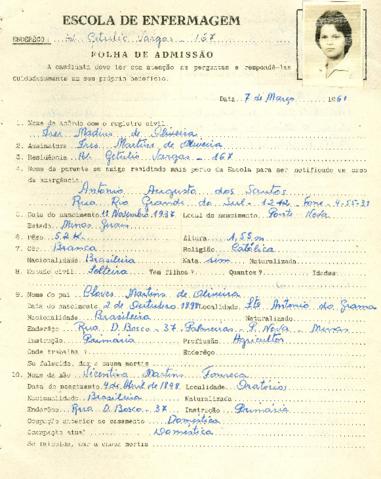 ESCOLA DE ENFERMAGEM
ENDEREÇO: Av. Getulio Vargas - 167
FOLHA DE ADMISSÃO
A candidata deve ler com atenção as perguntas e respondê-las
cuidadosamente em seu próprio benefício.
Data 7 de Março 1961
1. Nome de acôrdo com o registro civil
Ires Martins de Oliveira
2. Assinatura Ires Martins de Oliveira
3. Residência Av. Getulio Vargas - 167
4. Nome do parente ou amigo residindo mais perto da Escola para ser notificado em caso
de emergência
Antonio Augusto dos Santos
Rua Rio Grande do Sul - 1212 - Fone - 4-55-33
5. Data do nascimento Novembro 1937 Local do nascimento Ponte Nova
Estado Minas Gerais
6. Pêso 52 K Altura 1,55 m
7. Côr Branca Religião Católica
Nacionalidade Brasileira Nata sim Naturalizada
8. Estado civil Solteira Tem filhos? Quantos? Idades:
9. Nome do pai Martins de Oliveira
Data do nascimento 2 de Outubro 1898 Localidade Sto Antonio do Grama
Nacionalidade Brasileira Naturalizado
Enderêço Rua D. Bosco - 37 - Palmeiras - P. Nova - Minas
Instrução Primaria Profissão Agricultor
Onde trabalha? Enderêço
Se falecido, dar a causa mortis
10. Nome da mãe Vicentina Martins Fonseca
Data do nascimento 9 de Abril de 1898 Localidade Oratório
Nacionalidade Brasileira Naturalizada
Enderêço Rua D. Bosco - 37 Instrução Primária
Ocupação anterior ao casamento Doméstica
Ocupação atual Doméstica
Se falecida, dar a causa mortis